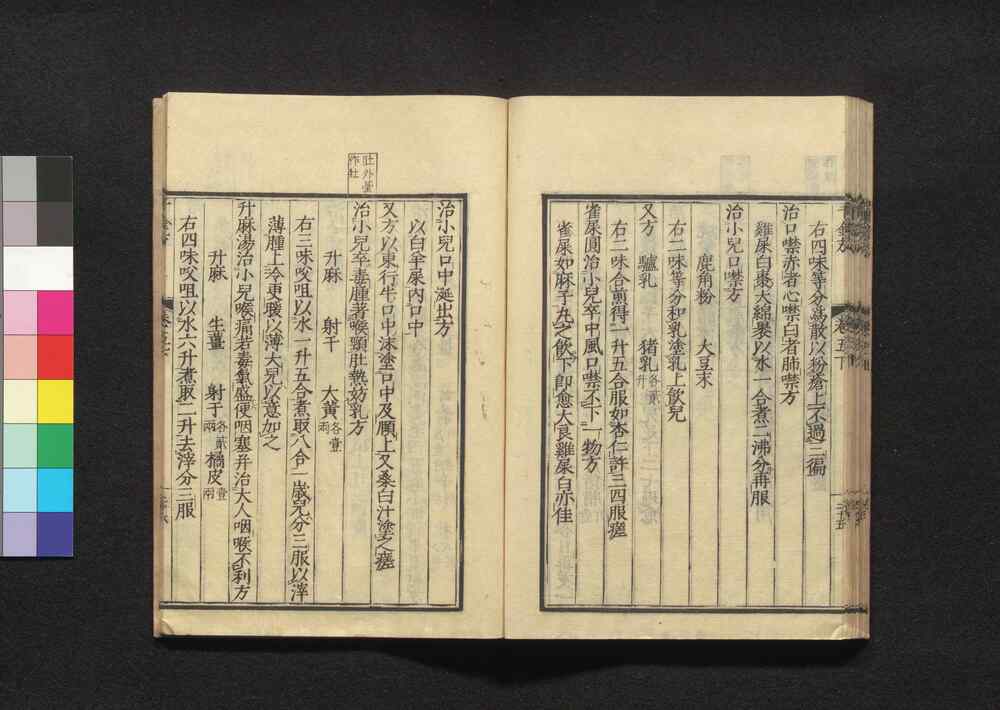 右四味等分爲散以粉瘡上不過三徧
治口噤赤者心噤白者肺噤方
雞屎白棗大綿裹以水一合煮二沸分再服
治小兒口噤方
鹿角粉 大豆末
右二味等分和乳塗乳上飲兒
又方 驢乳 猪乳各貳升
右二味合煎得一升五合服如杏仁許三四服瘥
雀屎圓治小兒卒中風口噤不下一物方
雀屎如麻子丸之飲下卽愈大良雞屎白亦佳
治小兒口中涎出方
以白羊屎內口中
又方以東行牛口中沫塗口中及頤上又桑白汁塗之瘥
肚外臺作壯
治小兒卒毒腫著喉頸肚熱妨乳方
升麻 射干 大黃各壹兩
右三味㕮咀以水一升五合煮取八合一歲兒分三服以滓
薄腫上冷更暖以薄大兒以意加之
升麻湯治小兒喉痛若毒氣盛便咽塞幷治大人咽喉不利方
升麻 生薑 射干各貳兩 橘皮壹兩
右四味㕮咀以水六升煮取二升去滓分三服